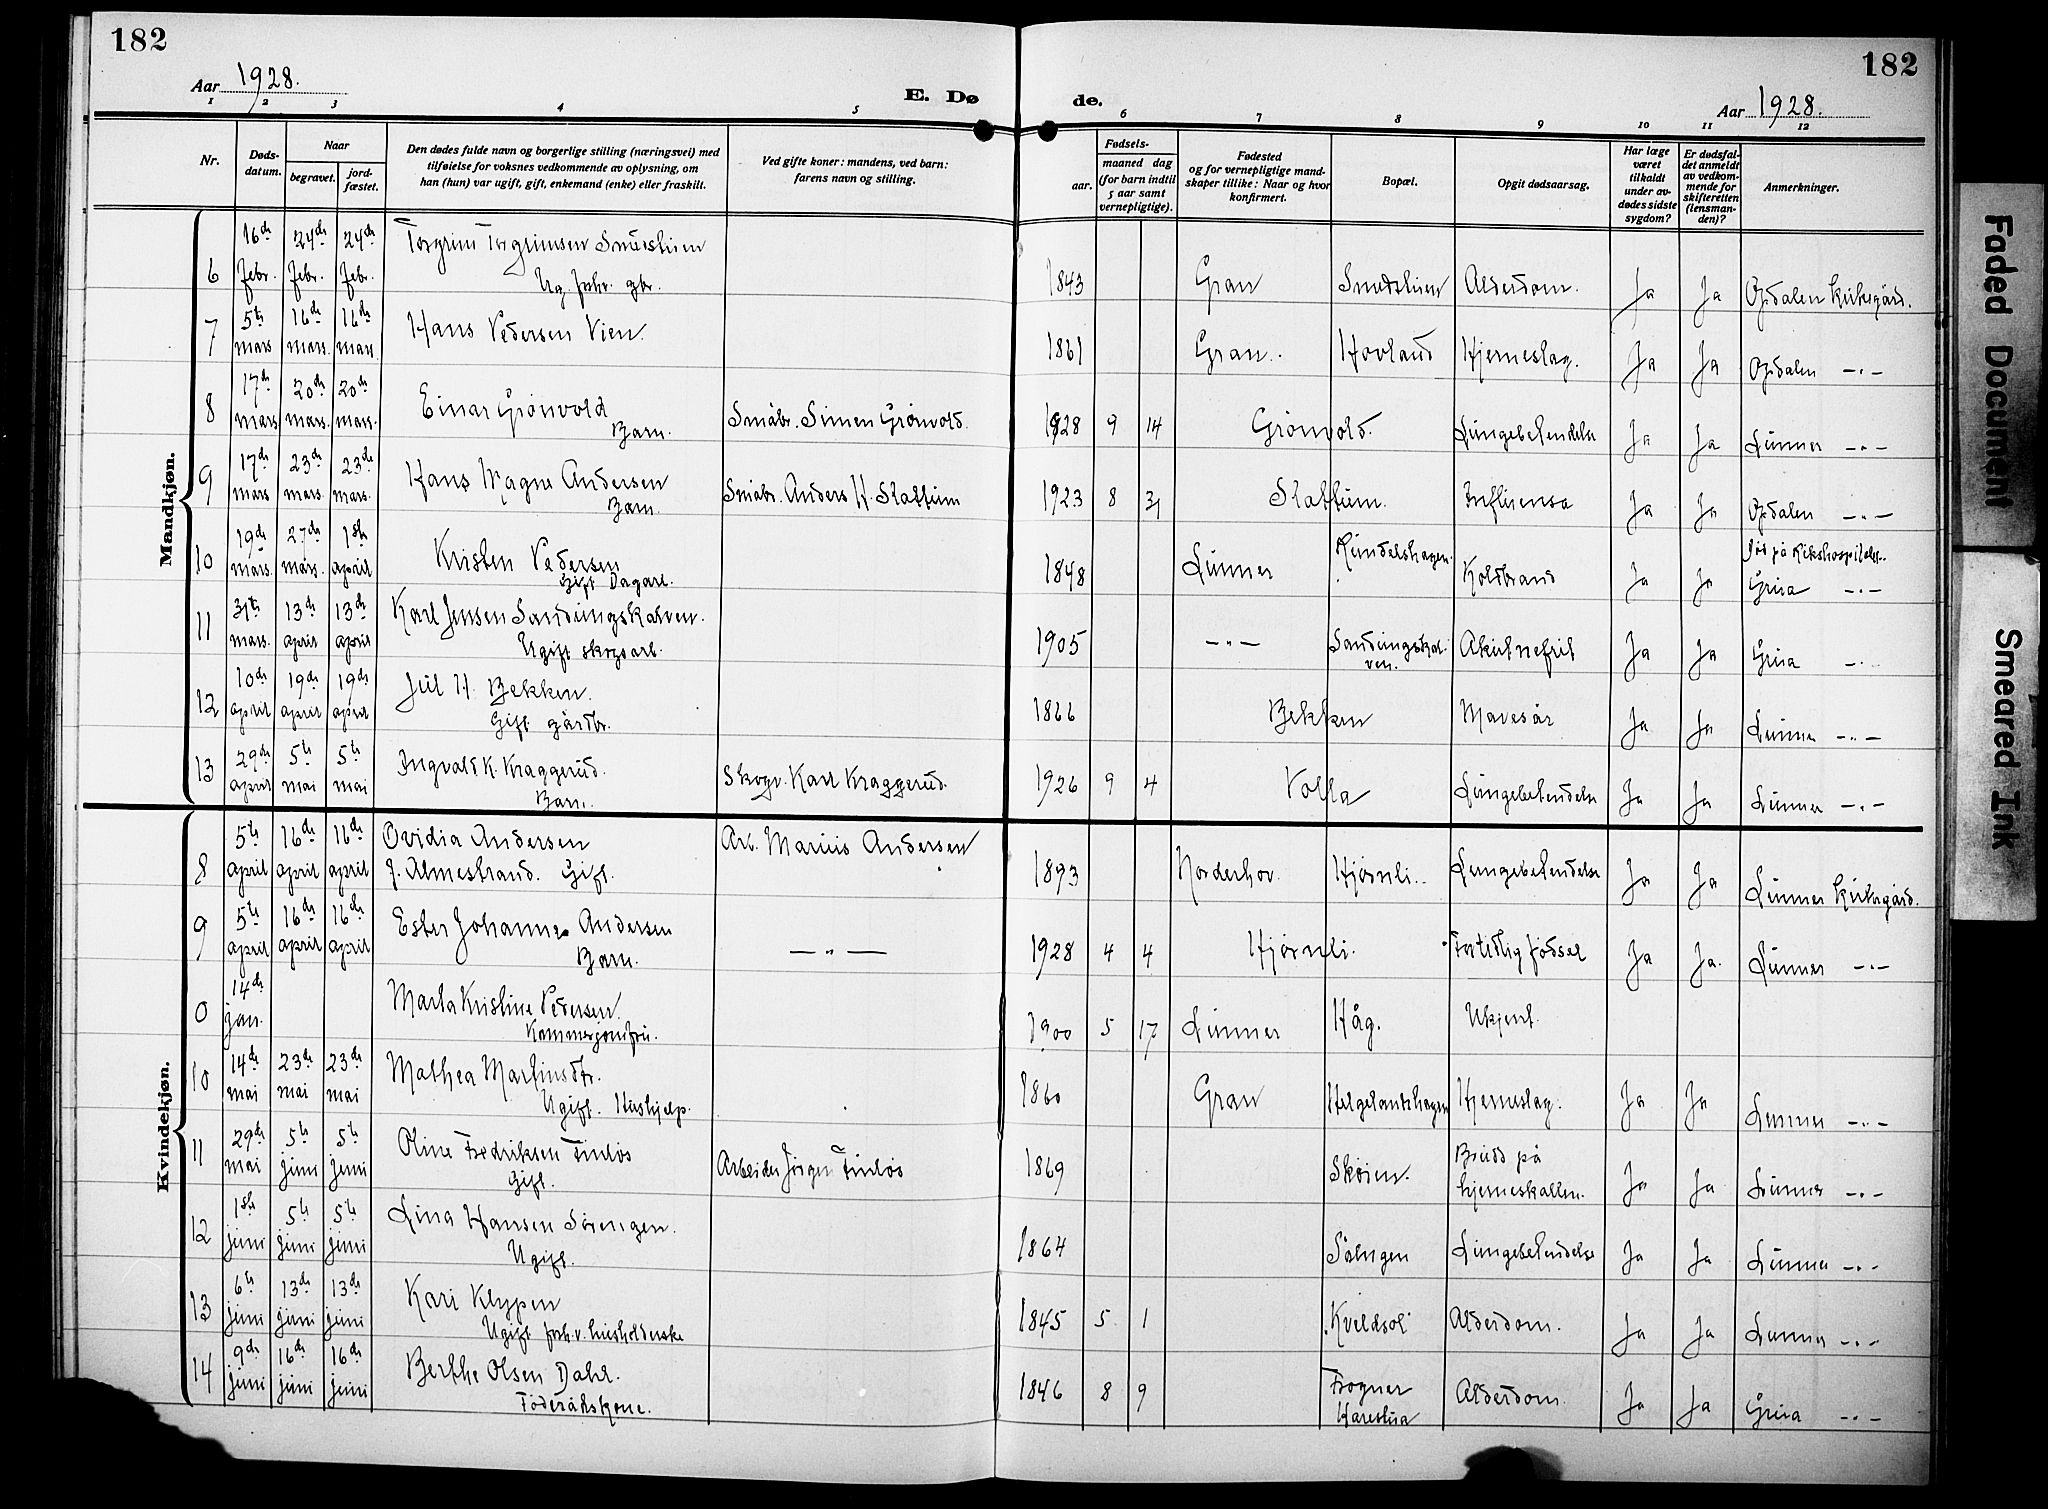 182
182
Aar 1928.
E. Dø de.
Aar 1928.
1 2 3 4 5 6 7 8 9 10 11 12
Nr.
Døds-
datum.
Naar
begravet.
jord-
fæstet.
Den dødes fulde navn og borgerlige stilling (næringsvei) med
tilføielse for voksnes vedkommende av oplysning, om
han (hun) var ugift, gift, enkemand (enke) eller fraskilt.
Ved gifte koner: mandens, ved barn:
farens navn og stilling.
Fødsels-
aar.
maaned dag
(for barn indtil
5 aar samt
vernepligtige).
Fødested
og for vernepligtige mand-
skaper tillike: Naar og hvor
konfirmert.
Bopæl.
Opgit dødsaarsag.
Har læge
været
tilkaldt
under av-
dødes sidste
sygdom?
Er dødsfal-
det anmeldt
av vedkom-
mende for
skifteretten
(lensman-
den)?
Anmerkninger.
Mandkjøn.
6 16de febr. 24de febr. 24de febr. Torgrim Torgrimsen Smedshien 1843 Gran Smedshien Alderdom. Ja Ja Opdalen Kirkegård.
Ug. forhv. gbr.
7 5te mars 16de mars. 16de mars. Hans Pedersen Vien. 1861 Gran. Hovland Hjerneslag. Ja Ja Opdalen -"-
8 17de mars 20de mars. 20de mars. Einar Grønvold Småbr. Simen Grønvold. 1928 9 14 Grønvold. Lungebetendelse Ja Ja Lunner -"-
Barn.
9 17de mars 23de mars. 23de mars. Hans Magne Andersen Småbr. Anders H. Slattum 1923 8 31 Slattum. Influensa Ja Ja Opdalen -"-
Barn.
10 19de mars. 27de mars. 1ste april Kristen Pedersen 1848 Lunner Koldbrand Ja Ja Død på Rikshospitalet.
Gift Dagarb. Grua -"-
11 31te mars. 13de april 13de april Karl Jensen Sandungskalven. 1905 -"- Sandungskal-
ven. Akut nefrit Ja Ja Grua -"-
Ugift skogsarb.
12 10de april 19de april 19de april Jul H. Bekken. 1866 Bekken Mavesår Ja Ja Lunner -"-
Gift gårdbr.
13 29de april 5te mai 5te mai Ingvald K. Kraggerud. Skogv. Karl Kraggerud. 1926 9 4 Volla Lungebetendelse Ja Ja Lunner -"-
Barn.
Kvindekjøn.
8 5te april 16de april 16de april Ovidia Andersen Arb. Marius Andersen 1893 Norderhov. Hjørnli. Lungebetendelse Ja Ja Lunner Kirkegård.
f. Almestrand. Gift.
9 5te april 16de april 16de april Ester Johanne Andersen -"- 1928 4 4 Hjørnli. Fortidlig fødsel Ja Ja. Lunner -"-
Barn.
0 14de jan. Marta Kristine Pedersen. 1900 5 17 Lunner Håg. Ukjent.
Kammerjomfru.
10 14de mai 23de mai 23de mai Mathea Martinsdtr. 1860 Gran Helgelandshagen Hjerneslag. Ja Ja Lunner -"-
Ugift. Hushjelp.
11 29de mai 5te juni 5te juni Oline Fredriksen Finløs Arbeider Jørgen Finløs 1869 Skøien. Brudd på
hjerneskallen. Ja Ja Lunner -"-
Gift.
12 1ste juni 5te juni 5te juni Lina Hansen Sørengen. 1864 Lungebetendelse Ja Ja Lunner -"-
Ugift.
13 6te juni 13de juni 13de juni Kari Klypen 1845 5 1 Kveldsol Alderdom. Ja Ja Lunner -"-
Ugift forhv. husholderske
14 9de juni 16de juni 16de juni Berthe Olsen Dahl. 1846 8 9 Frogner
Harestua Alderdom. Ja Ja Grua -"-
Føderådskone.
Faded Document
Smeared Ink